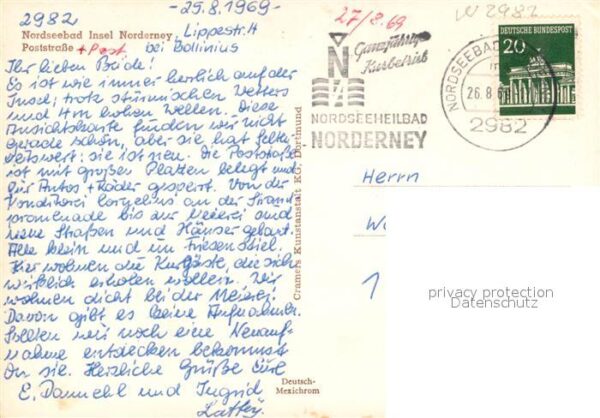 2982 -25.8.1969-
Nordseebad Insel Norderney, Lippestr. 14
Poststraße + Post bei Bollinius
Ihr lieben Beide!
Es ist wie immer herlich auf der
Insel, trotz stürmischen Wetters
und 4m hohen Wellen. Diese
Ansichtskarte finden wir nicht
gerade schön, aber sie hat
: sie ist neu. Die Poststraße
ist mit großen Platten belegt und
für Autos + Räder gesperrt. Von der
Konditorei an der Strand
promenade bis zur Meierei sind
neue Straßen und Häuser gebaut.
Alle klein und im Friesenstil.
Hier wohnen die Kurgäste, die sich
wirklich erholen wollen. Wir
wohnen dicht bei der Meierei.
Davon gibt es keine Aufnahme.
Sollten wir noch eine Neuauf-
nahme entdecken bekommst
Du sie. Herzliche Grüße Eure
E. und Ingrid
Cramers Kunstanstalt KG, Dortmund
Deutsch-
Mexichrom
27/8.69
W 2982
Ganzjähriger
Kurbetrieb
N
NORDSEEHEILBAD
NORDERNEY
NORDSEEBAD
26.8.69
2982
DEUTSCHE BUNDESPOST
20
Herrn
W
1
privacy protection
Datenschutz